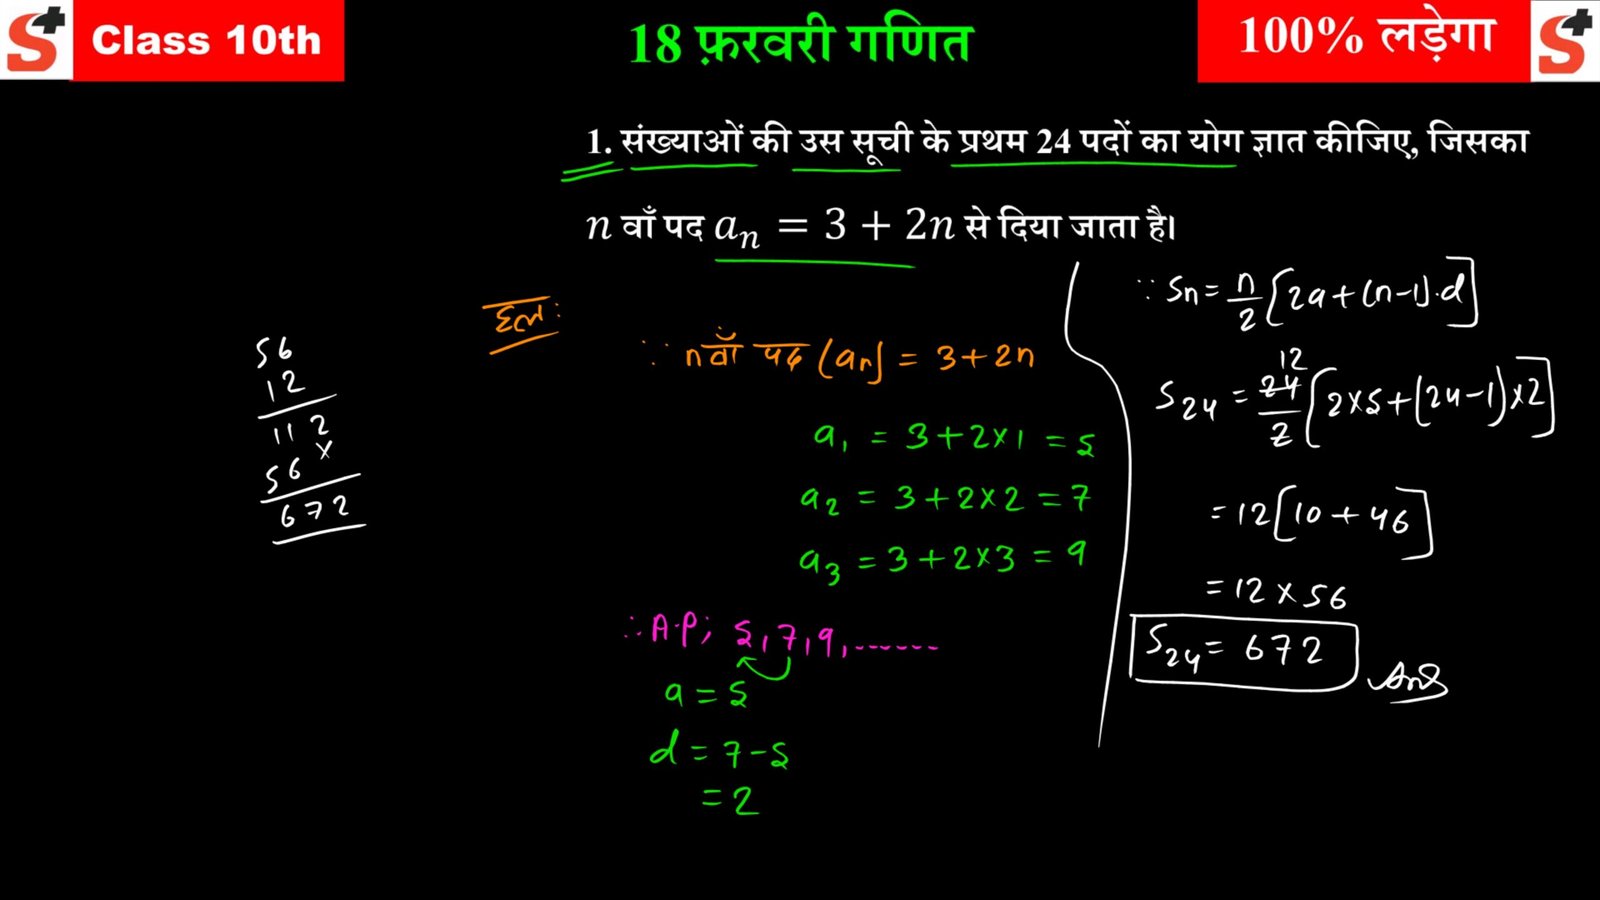 Class 10th
18 फ़रवरी गणित
100% लड़ेगा
1. संख्याओं की उस सूची के प्रथम 24 पदों का योग ज्ञात कीजिए, जिसका
n वाँ पद aₙ = 3 + 2n से दिया जाता है।
हल:
∵ n वाँ पद (an) = 3+2n
a₁ = 3+2×1 = 5
a₂ = 3+2×2 = 7
a₃ = 3+2×3 = 9
∴ A.P; 5, 7, 9, .......
a = 5
d = 7-5
= 2
56
12
112
56×
672
∵ Sn = n/2 [2a+(n-1).d]
12
S₂₄ = 24/2 [2×5+(24-1)×2]
= 12[10+46]
= 12×56
S₂₄ = 672
Ans